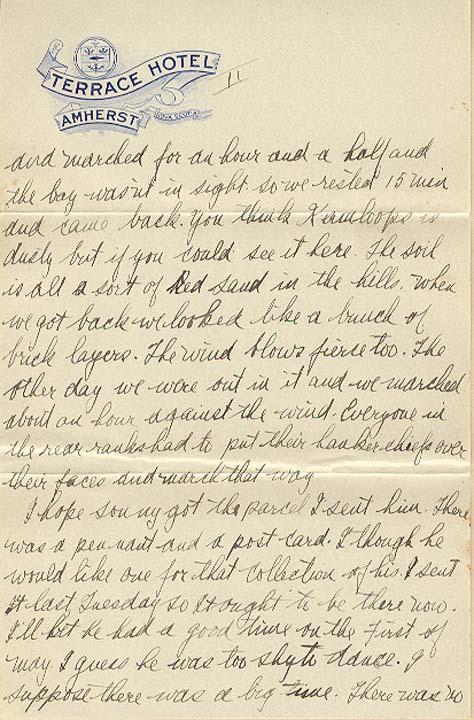 TERRACE HOTEL
AMHERST NOVA SCOTIA
II
and marched for an hour and a half and
the bay wasnt in sight so we rested 15 min
and came back. You think Kamloops is
dusty but if you could see it here. The soil
is all a sort of Red sand in the hills. When
we got back we looked like a bunch of
brick layers. The wind blows fierce too. The
other day we were out in it and we marched
about an hour against the wind. Everyone in
the rear ranks had to put their hankerchiefs over
their faces and march that way
I hope sonny got the parcel I sent him. There
was a pennant and a post card. I though he
would like one for that collection of his. I sent
it last Tuesday so it ought to be there now.
I'll bet he had a good time on the First of
May. I guess he was too shy to dance. I
suppose there was a big time. There was no